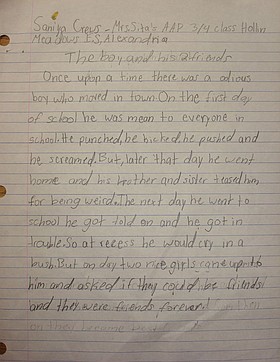 Saniya Crews - Mrs. Sita's AAP 3/4 class Hollin
Meadows E.S, Alexandria
The boy and his 2 friends
Once upon a time there was a odious
boy who moved in town. On the first day
of school he was mean to everyone in
school. He punched, he kicked, he pushed and
he screamed. But, later that day he went
home and his brother and sister teased him
for being weird. The next day he went to
school he got told on and he got in
trouble. So at recess he would cry in a
bush. But on day two nice girls came up to
him and asked if they could be friends
and they were friends forever!